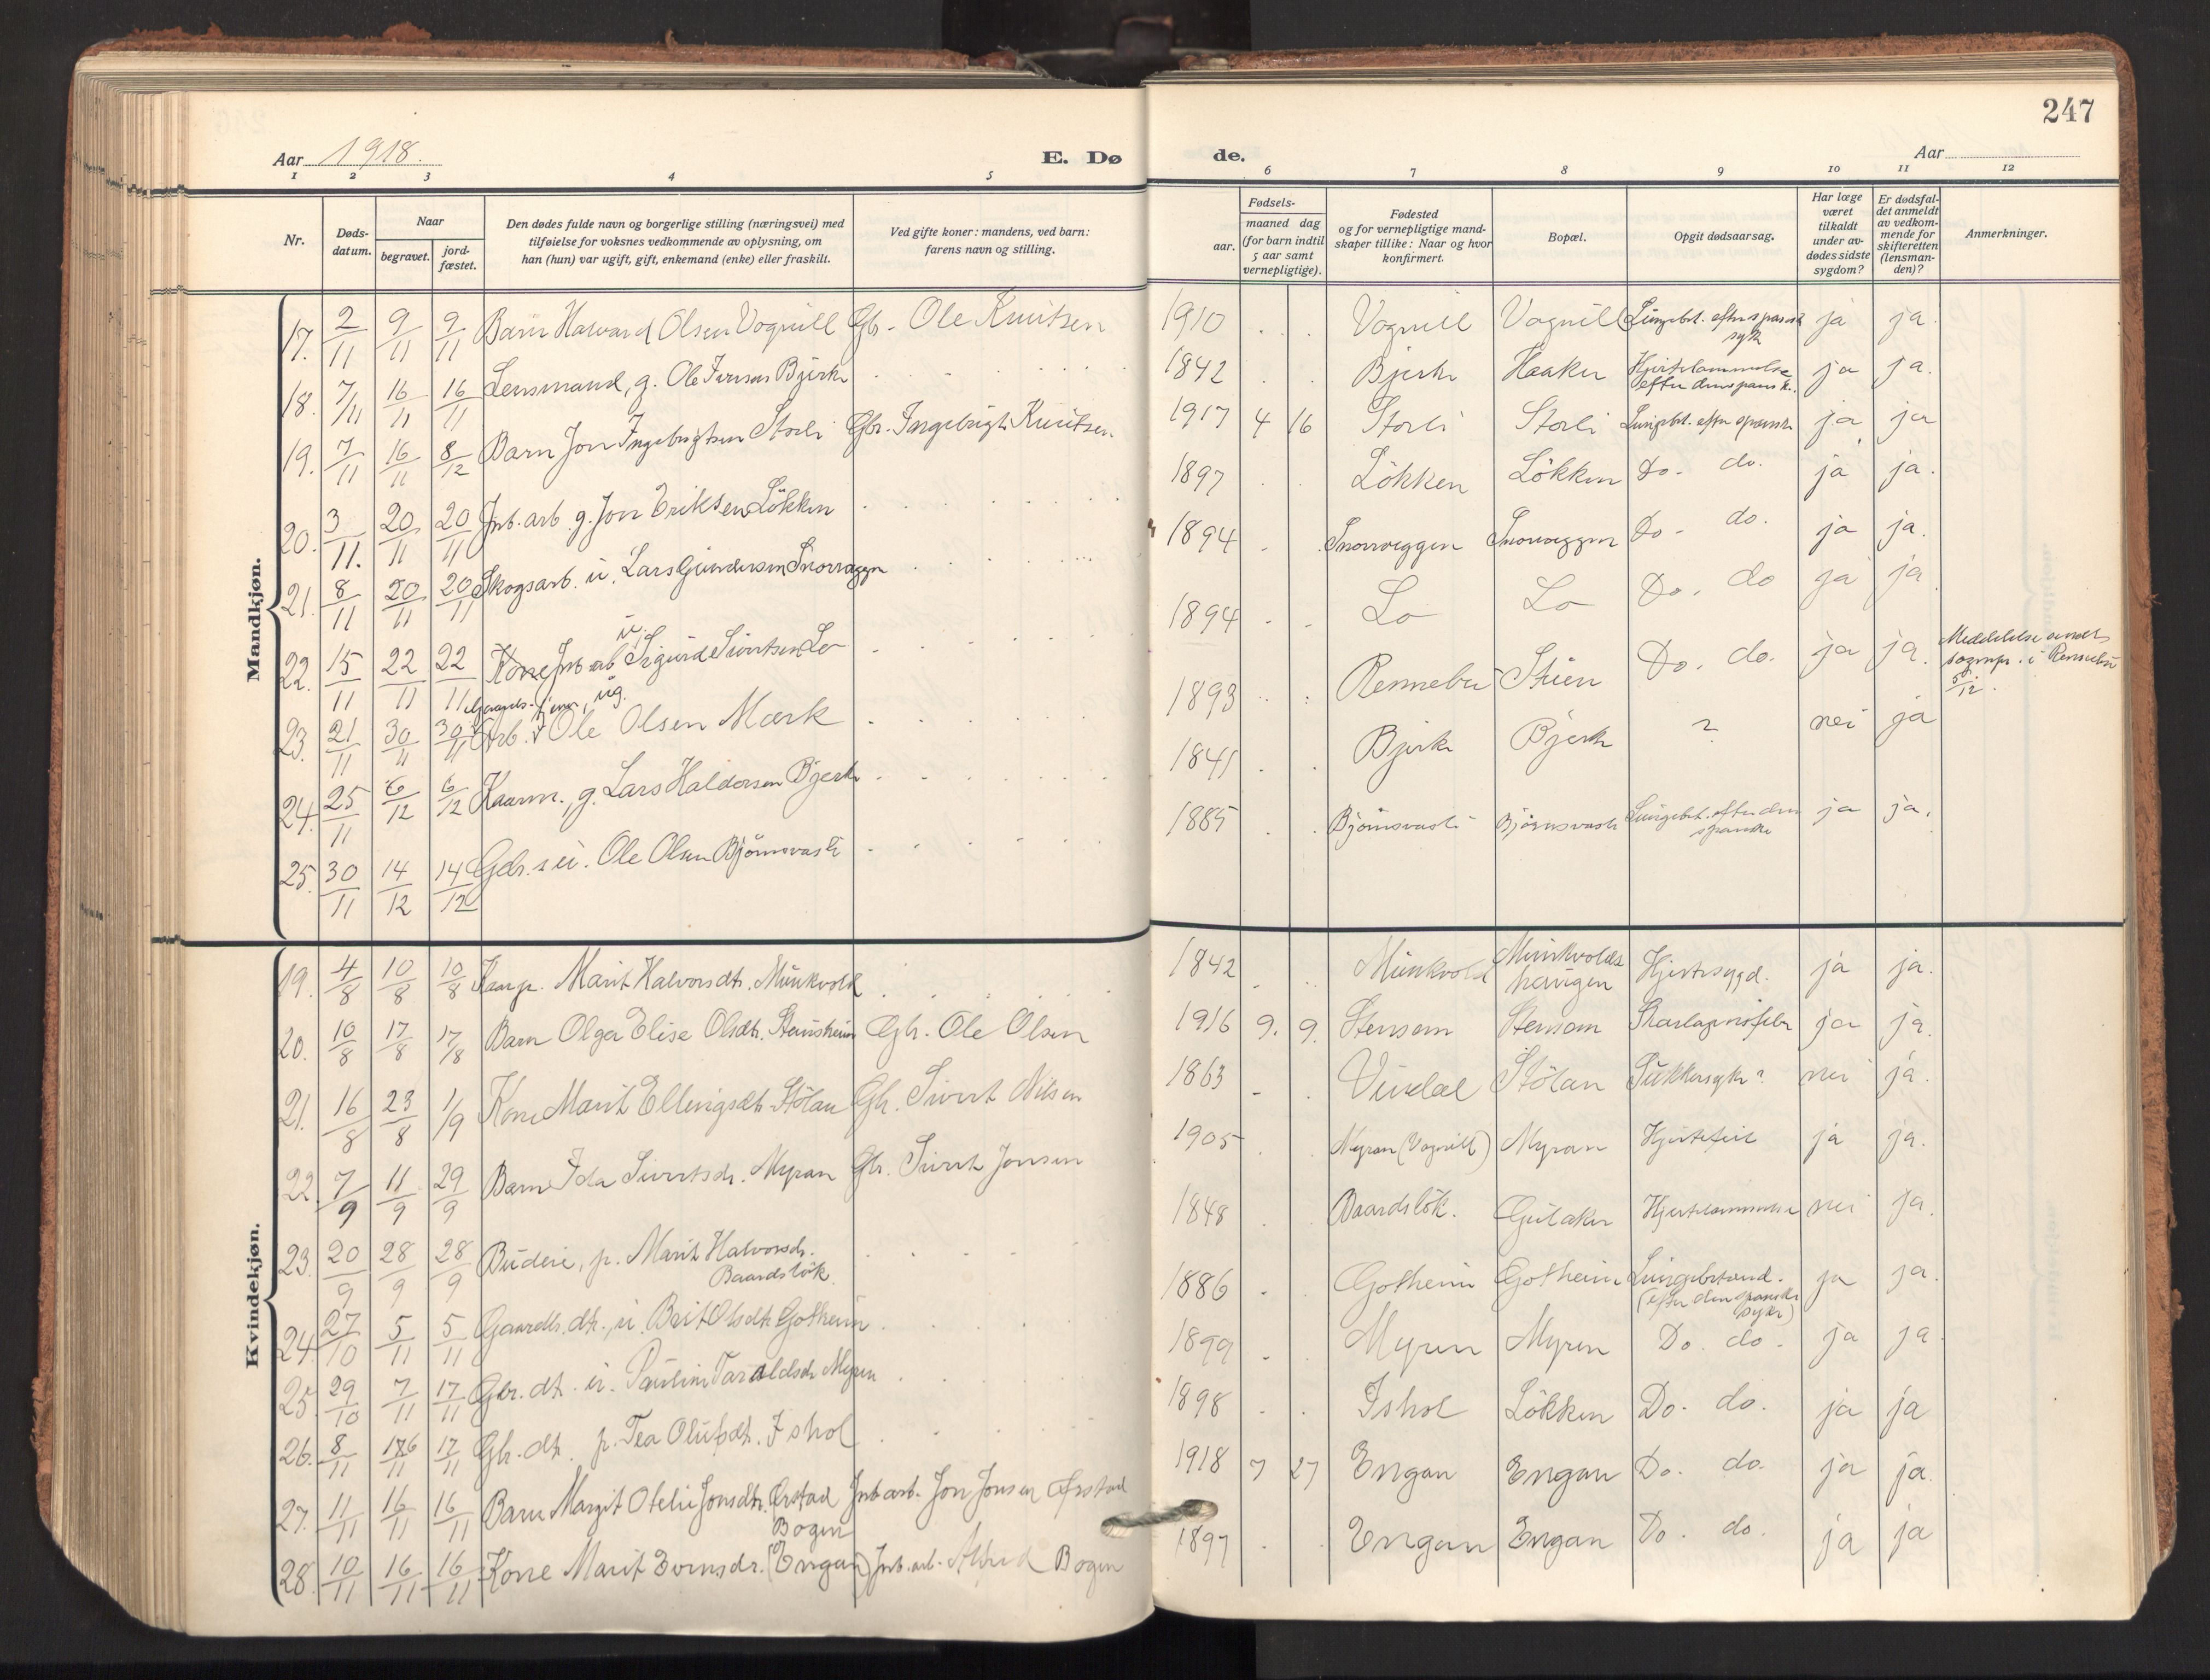 247
Aar 1918.
E. Dø de.
Aar
1 2 3 4 5 6 7 8 9 10 11 12
Nr.
Døds-
datum.
Naar
begravet.
jord-
fæstet.
Den dødes fulde navn og borgerlige stilling (næringsvei) med
tilføielse for voksnes vedkommende av oplysning, om
han (hun) var ugift, gift, enkemand (enke) eller fraskilt.
Ved gifte koner: mandens, ved barn:
farens navn og stilling.
Fødsels-
aar.
maaned dag
(for barn indtil
5 aar samt
vernepligtige).
Fødested
og for vernepligtige mand-
skaper tillike: Naar og hvor
konfirmert.
Bopæl.
Opgit dødsaarsag.
Har læge
været
tilkaldt
under av-
dødes sidste
sygdom?
Er dødsfal-
det anmeldt
av vedkom-
mende for
skifteretten
(lensman-
den)?
Anmerkninger.
Mandkjøn.
17. 2/11 9/11 9/11 Barn Halvard Olsen Vognill Gbr. Ole Knutsen 1910 Vognill Vognill Lungebet. efter spansk syk ja ja.
18. 7/11 16/11 16/11 Lensmand, g. Ole Iversen Bjerke 1842 Bjerke Haaker Hjertelammelse efter den spansk. ja ja.
19. 7/11 16/11 8/12 Barn Jon Ingebrigtsen Storli Gbr. Ingebrigt Knutsen 1917 4 16 Storli Storli Lungebet. efter spansk ja ja
20. 3/11. 20/11 20/11 Jnb. arb. g. Jon Eriksen Løkken 1897 Løkken Løkken Do. do. ja ja.
21. 8/11 20/11 20/11 Skogsarb. u. Lars Gundersen Snorvæggen 1894 Snorvæggen Snorvæggen Do. do. ja ja.
22. 15/11 22/11 22/11 Jnb. arb. u. Sigurd Sivertsen Lo 1894 Lo Lo Do. do ja ja
23. 21/11 30/11 30/11 Arb. ug. Ole Olsen Mærk 1893 Rennebu Stuen Do. do. ja ja. Meddelelse sendt sognepr. i Rennebu 5/12.
24. 25/11 6/12 6/12 Kaarm., g. Lars Haldorsen Bjerke 1841 Bjerke Bjerke ? nei ja
25. 30/11 14/12 14/12 Gbr. s. u. Ole Olsen Bjørnsvasli 1885 Bjørnsvasli Bjørnsvasli Lungebet. efter den spanske ja ja.
Kvindekjøn.
19. 4/8 10/8 10/8 Marit Halvorsdt. Munkvold 1842 Munkvold Munkvoldshaugen Hjertesygd. ja ja.
20. 10/8 17/8 17/8 Barn Olga Elise Olsdt. Stensheim Gbr. Ole Olsen 1916 9. 9. Stensem Stensem Skarlagensfeber ja ja.
21. 16/8 23/8 1/9 Kone Marit Ellingsdt. Stølan Gbr. Sivert Nilsen 1863 Vindal Stølan Sukkersyke? nei ja.
22. 7/9 11/9 29/9 Barn Ida Sivertsdr. Myran Gbr. Sivert Jonsen 1905 Myran (Vognill) Myran Hjertefeil ja ja.
23. 20/9 28/9 28/9 Budeie, p. Marit Halvorsdr. Baardsløk. 1848 Baardsløk. Gulaker Hjertelammelse nei ja.
24. 27/10 5/11 5/11 Gaardbr. dt., u. Brit Olsdt. Gotheim 1886 Gotheim Gotheim Lungebetænd. (efter den spanske syke) ja ja.
25. 29/10 7/11 17/11 Gbr. dt. u. Pauline Taraldsdr. Myren 1899 Myren Myren Do. do. ja ja.
26. 8/11 16/11 17/11 Gbr. dt. p. Tea Olufsdt. Ishol 1898 Ishol Løkken Do. do. ja ja
27. 11/11 16/11 16/11 Barn Margit Otelie Jonsdt. Ørstad Jnb. arb. Jon Jonsen Ørstad 1918 7 27 Engan Engan Do. do. ja ja.
28. 10/11 16/11 16/11 Kone Marit Evensdr. Bogen (Engan) Jnb. arb. Alfred Bogen 1897 Engan Engan Do. do. ja ja